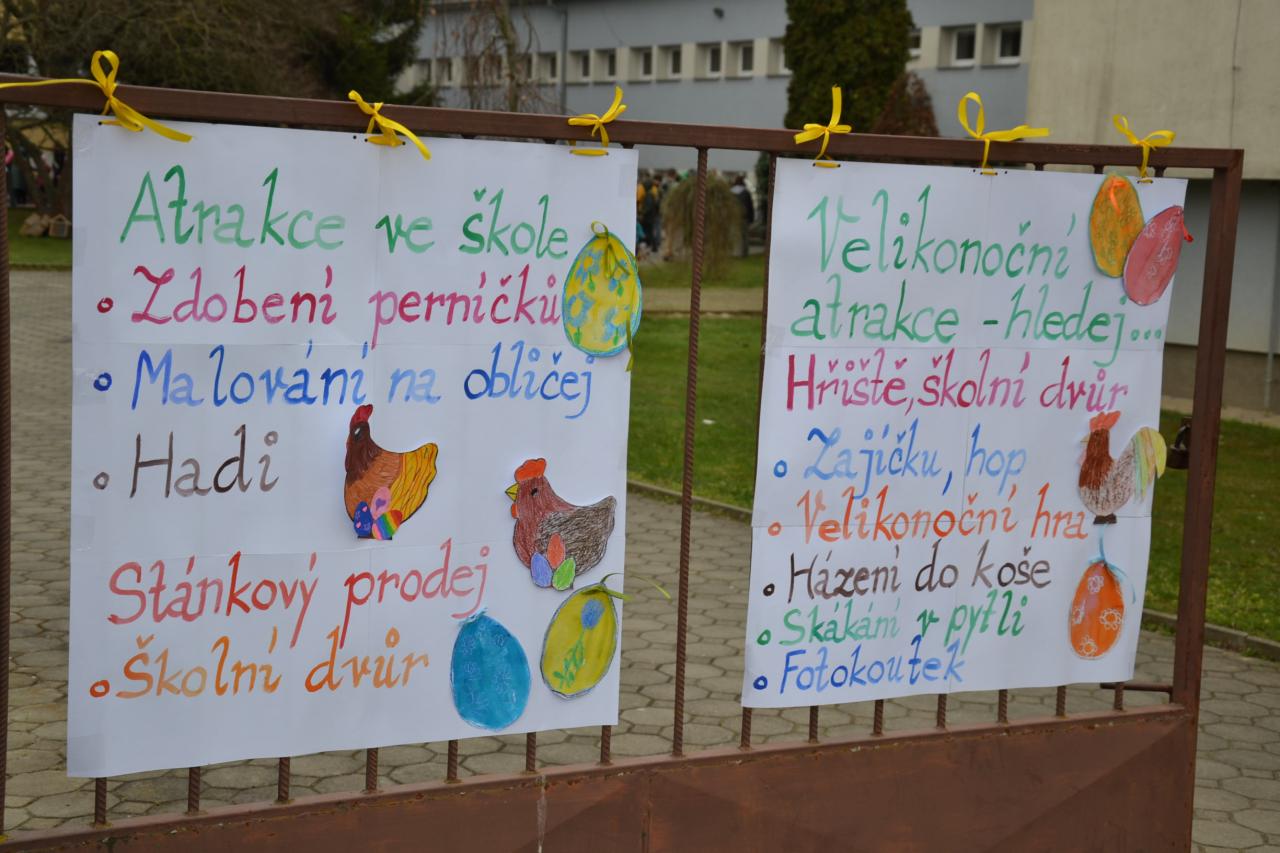 Atrakce ve škole
• Zdobení perníčků
• Malování na obličej
• Hadi
Stánkový prodej
• Školní dvůr
Velikonoční
atrakce - hledej...
Hřiště, školní dvůr
• Zajíčku, hop
• Velikonoční hra
• Házení do koše
• Skákání v pytli
• Fotokoutek